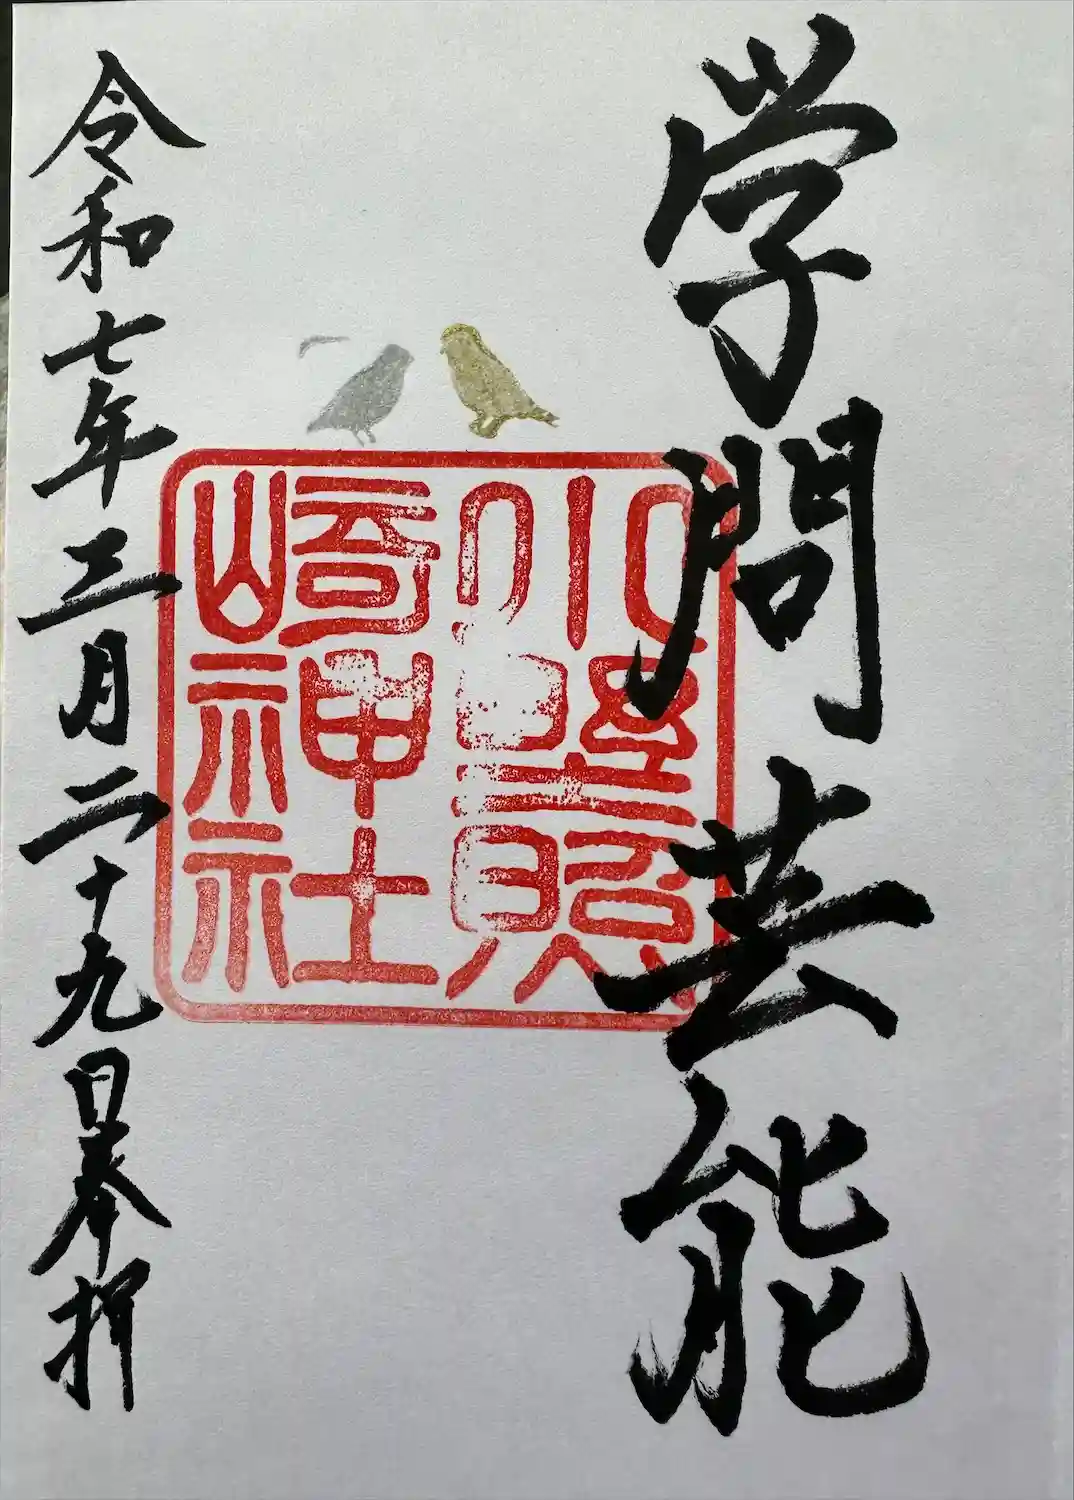 学問芸能
小野照
崎神社
令和七年三月二十九日奉拝